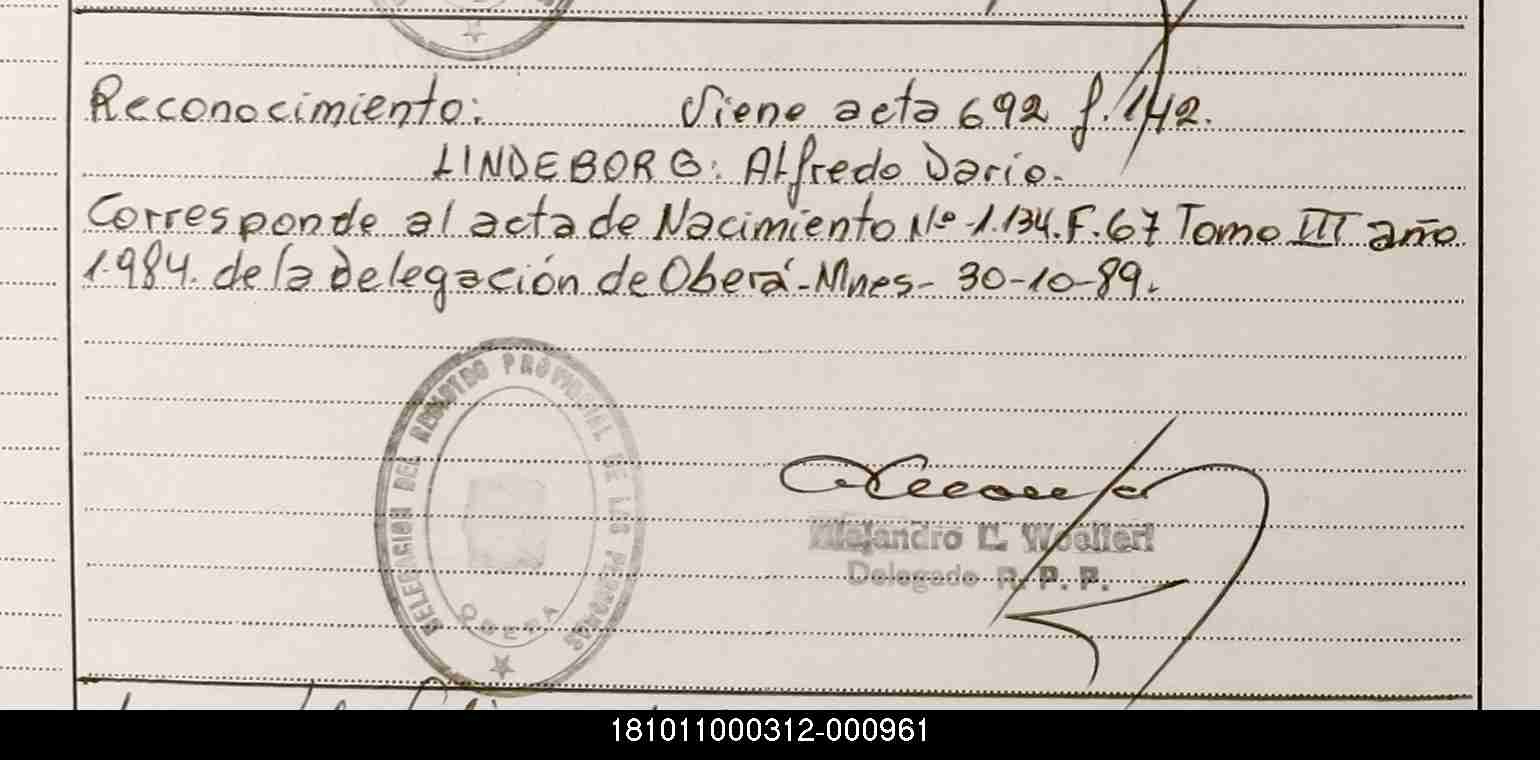 Reconocimiento: Viene acta 692 f. 142.
LINDEBORG: Alfredo Dario.
Corresponde al acta de Nacimiento Nº 1.134. F. 67 Tomo III año
1.984. de la Delegación de Oberá - Mnes - 30-10-89.
DELEGACION DEL REGISTRO PROVINCIAL DE LAS PERSONAS
OBERA
Alejandro
Delegado R. P. P.
181011000312-000961